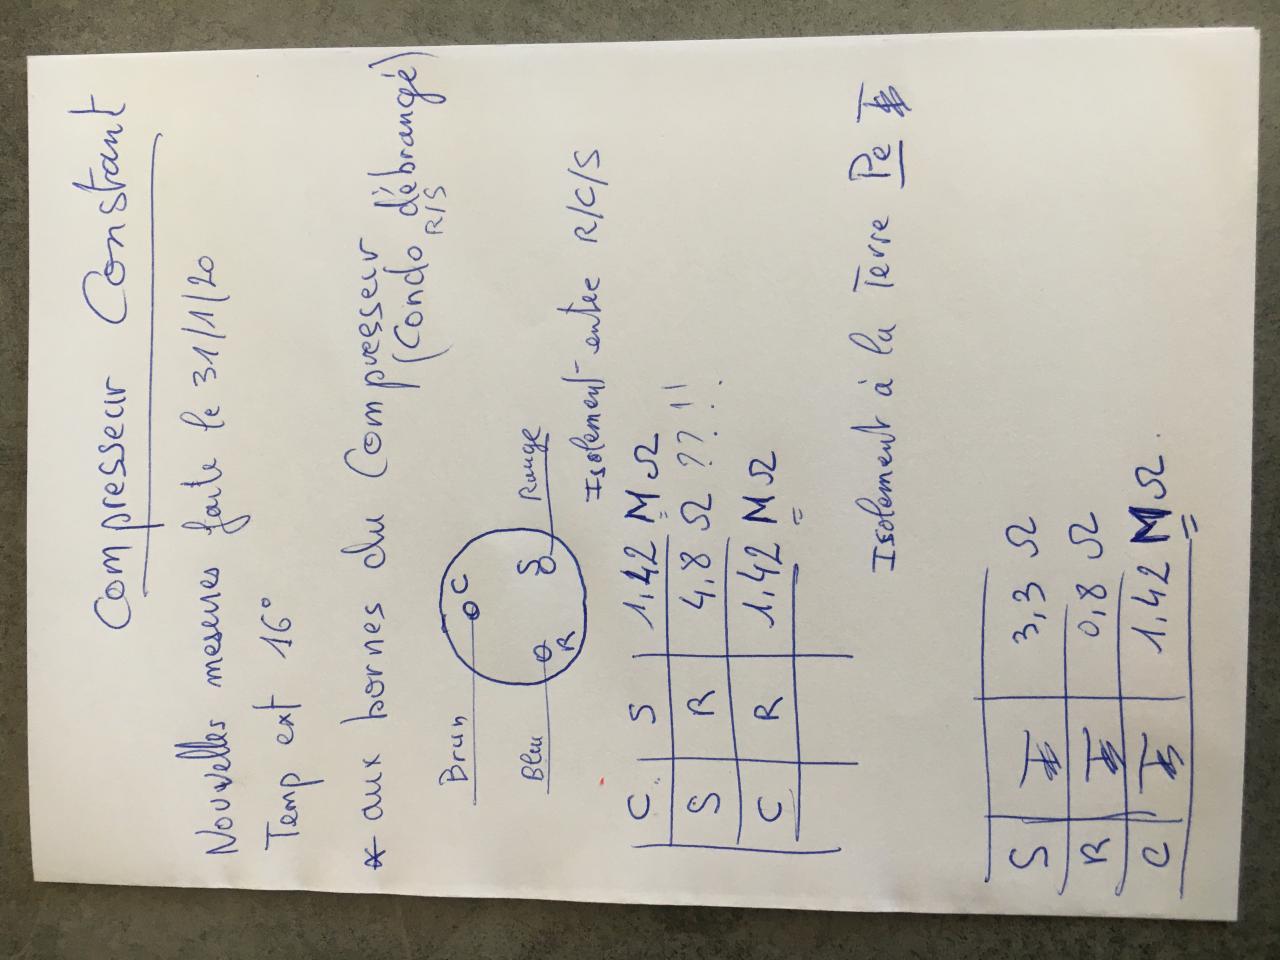 Compresseur Constant
Nouvelles mesures faite le 31/1/20
Temp ext 16°
* aux bornes du Compresseur
(Condo débrangé)
R/S
Brun
C
Bleu
R
S
Rouge
Isolement entre R/C/S
C S 1,42 MΩ
S R 4,8 Ω ??!!
C R 1,42 MΩ
Isolement à la Terre Pe
S 3,3 Ω
R 0,8 Ω
C 1,42 MΩ.